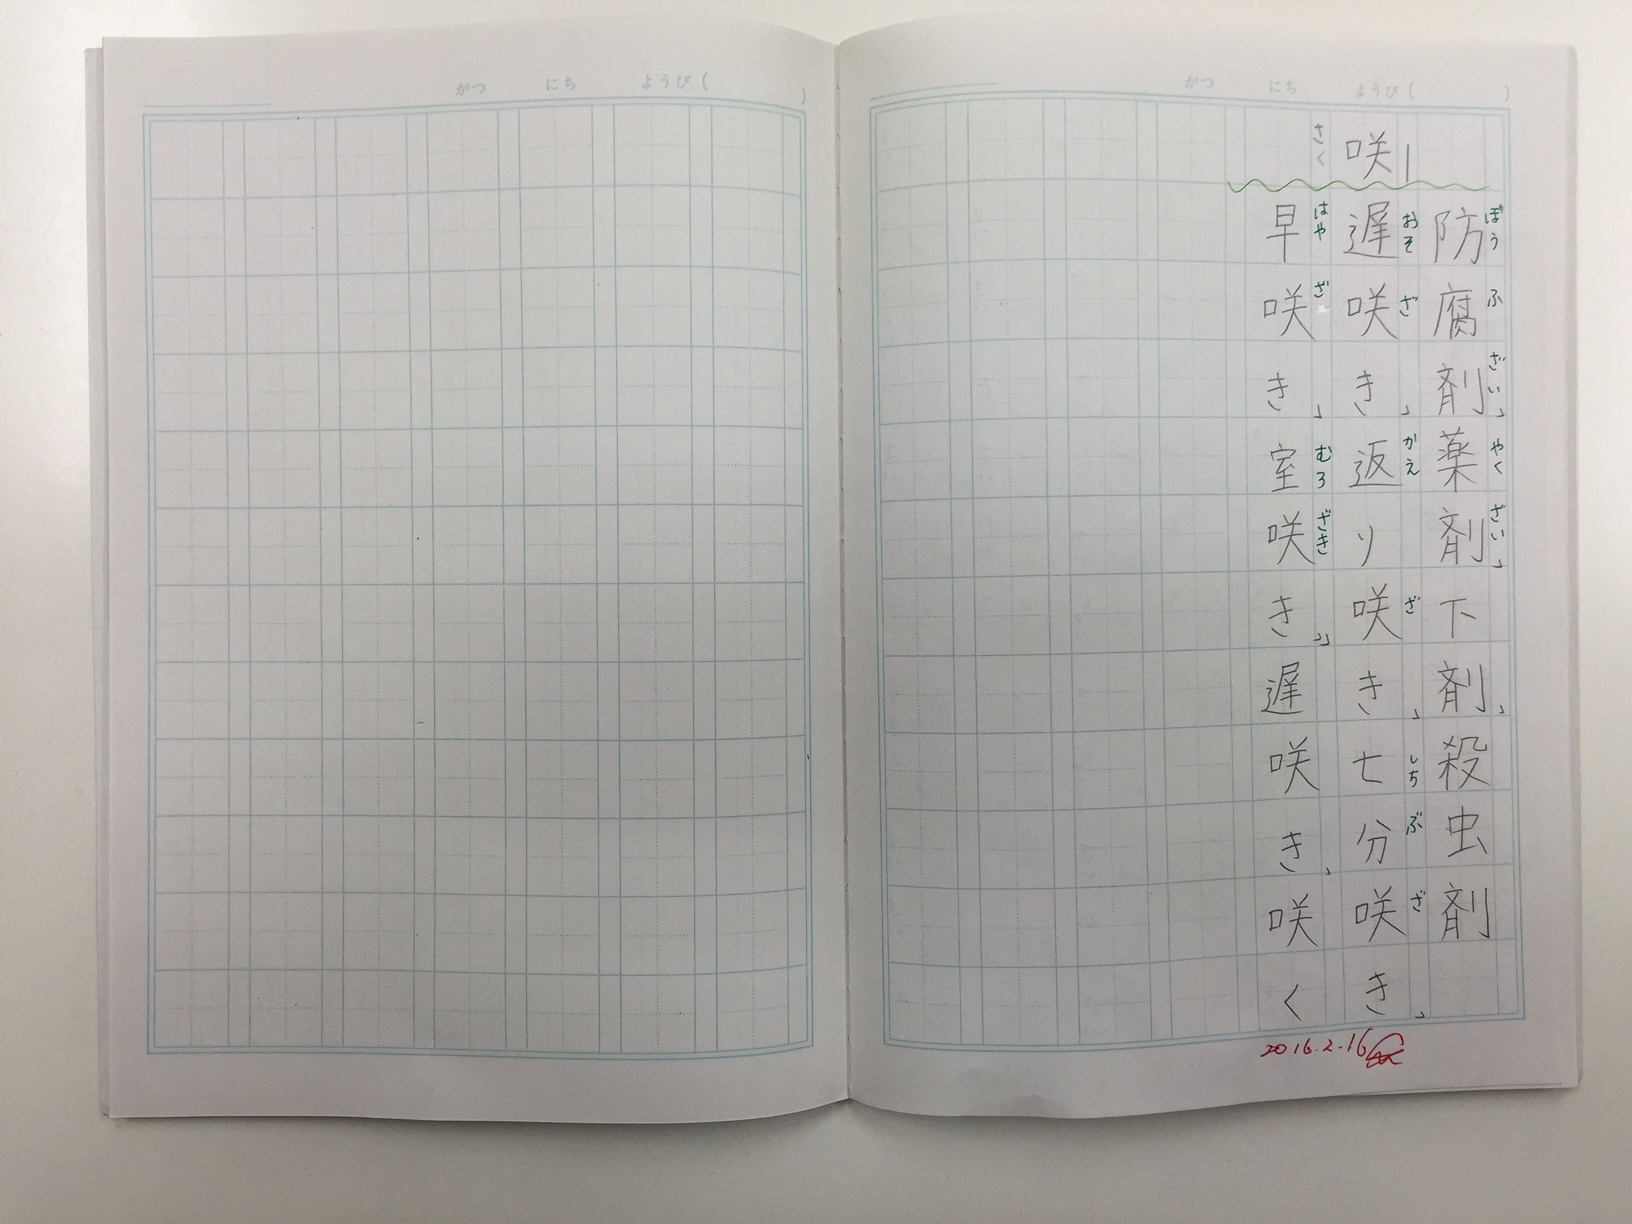 がつ にち ようび( )
がつ にち ようび( )
防腐剤」薬剤」下剤」殺虫剤
ぼう ふ ざい やく ざい
咲|遅咲き」返り咲き」七分咲き」
おそ ざ かえ ざ しち ぶ ざ
早咲き」室咲き」」遅咲き、咲く
さく はや ざ むろ ざき
2016.2.16